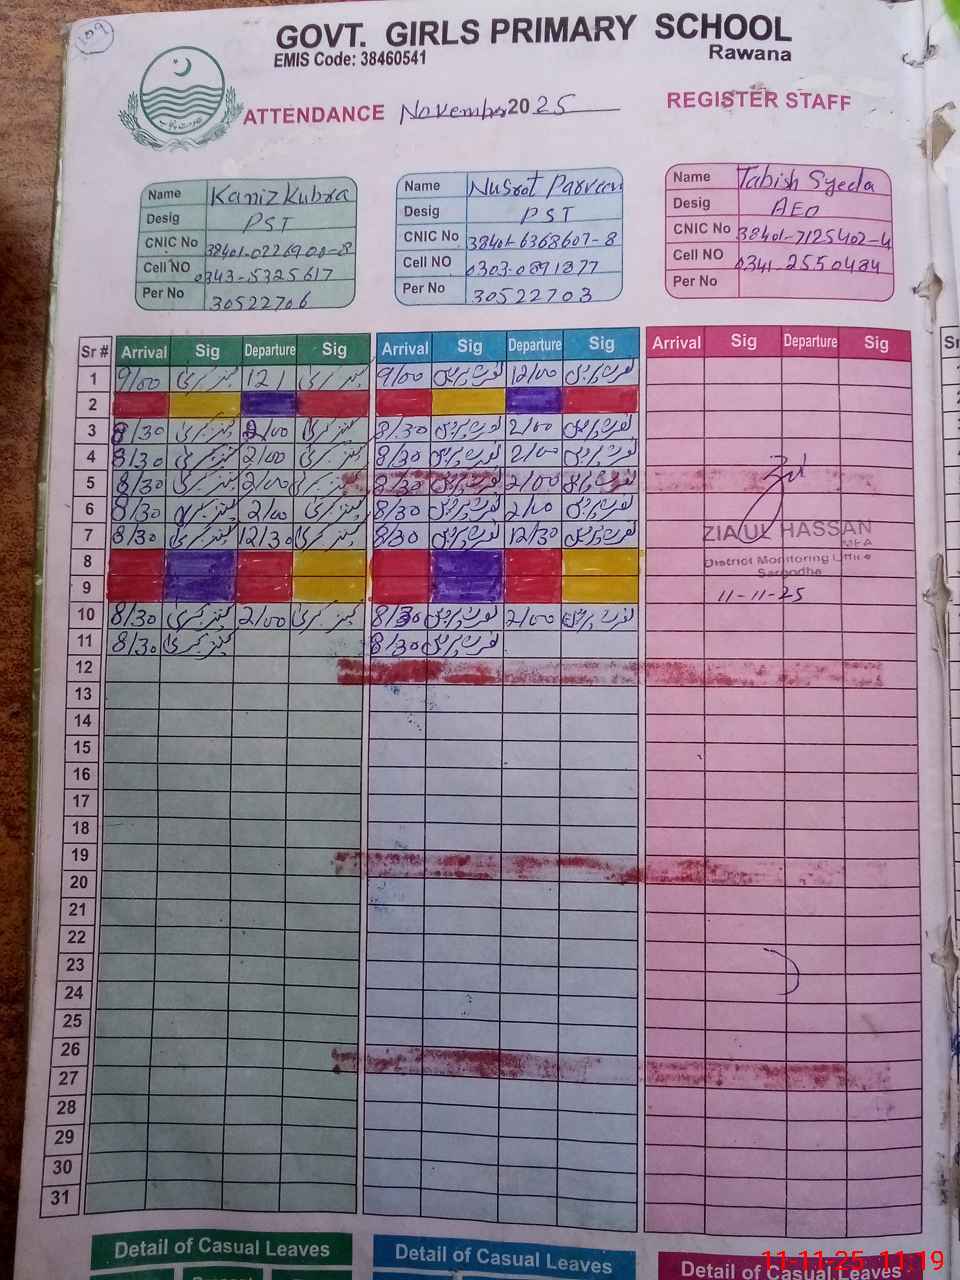 109
GOVT. GIRLS PRIMARY SCHOOL
EMIS Code: 38460541
Rawana
ATTENDANCE November 2025 REGISTER STAFF
Name Kaniz Kubra
Desig PST
CNIC No
Cell NO 0343-5325617
Per No 30522706
Name Nusrat Parveen
Desig PST
CNIC No 38401-6368607-8
Cell NO 0303-0891877
Per No 30522703
Name Tabish Syeda
Desig AEO
CNIC No 38401-7125402-4
Cell NO 0341-2550484
Per No
Sr # Arrival Sig Departure Sig Arrival Sig Departure Sig Arrival Sig Departure Sig
1 9/00 کنیز کبری 12 کنیز کبری 9/00 نصرت پروین 12/00 نصرت پروین
2
3 8/30 کنیز کبری 2/00 کنیز کبری 8/30 نصرت پروین 2/00 نصرت پروین
4 8/30 کنیز کبری 2/00 کنیز کبری 8/30 نصرت پروین 2/00 نصرت پروین
5 8/30 کنیز کبری 2/00 کنیز کبری 8/30 نصرت پروین 2/00 نصرت پروین
6 8/30 کنیز کبری 2/00 کنیز کبری 8/30 نصرت پروین 2/00 نصرت پروین
7 8/30 کنیز کبری 12/30 کنیز کبری 8/30 نصرت پروین 12/30 نصرت پروین
ZIA UL HASSAN
MEA
8
District Monitoring Office
Sargodha
9
11-11-25
10 8/30 کنیز کبری 2/00 کنیز کبری 8/30 نصرت پروین 2/00 نصرت پروین
11 8/30 کنیز کبری 8/30 نصرت پروین
12
13
14
15
16
17
18
19
20
21
22
23
24
25
26
27
28
29
30
31
Detail of Casual Leaves Detail of Casual Leaves Detail of Casual Leaves
11-11-25 11:19